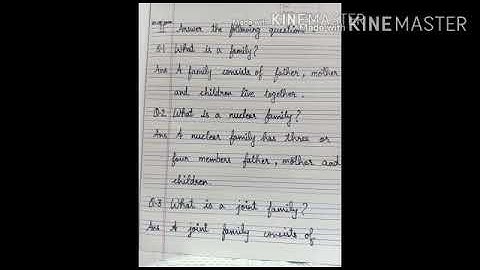 Made with KINEMASTER
Made with KINEMASTER
II Answer the following question
Q.1 What is a family?
Ans A family consists of father, mother
and children live together.
Q.2 What is a nuclear family?
Ans A nuclear family has three or
four members father, mother and
children.
Q.3 What is a joint family?
Ans A joint family consists of